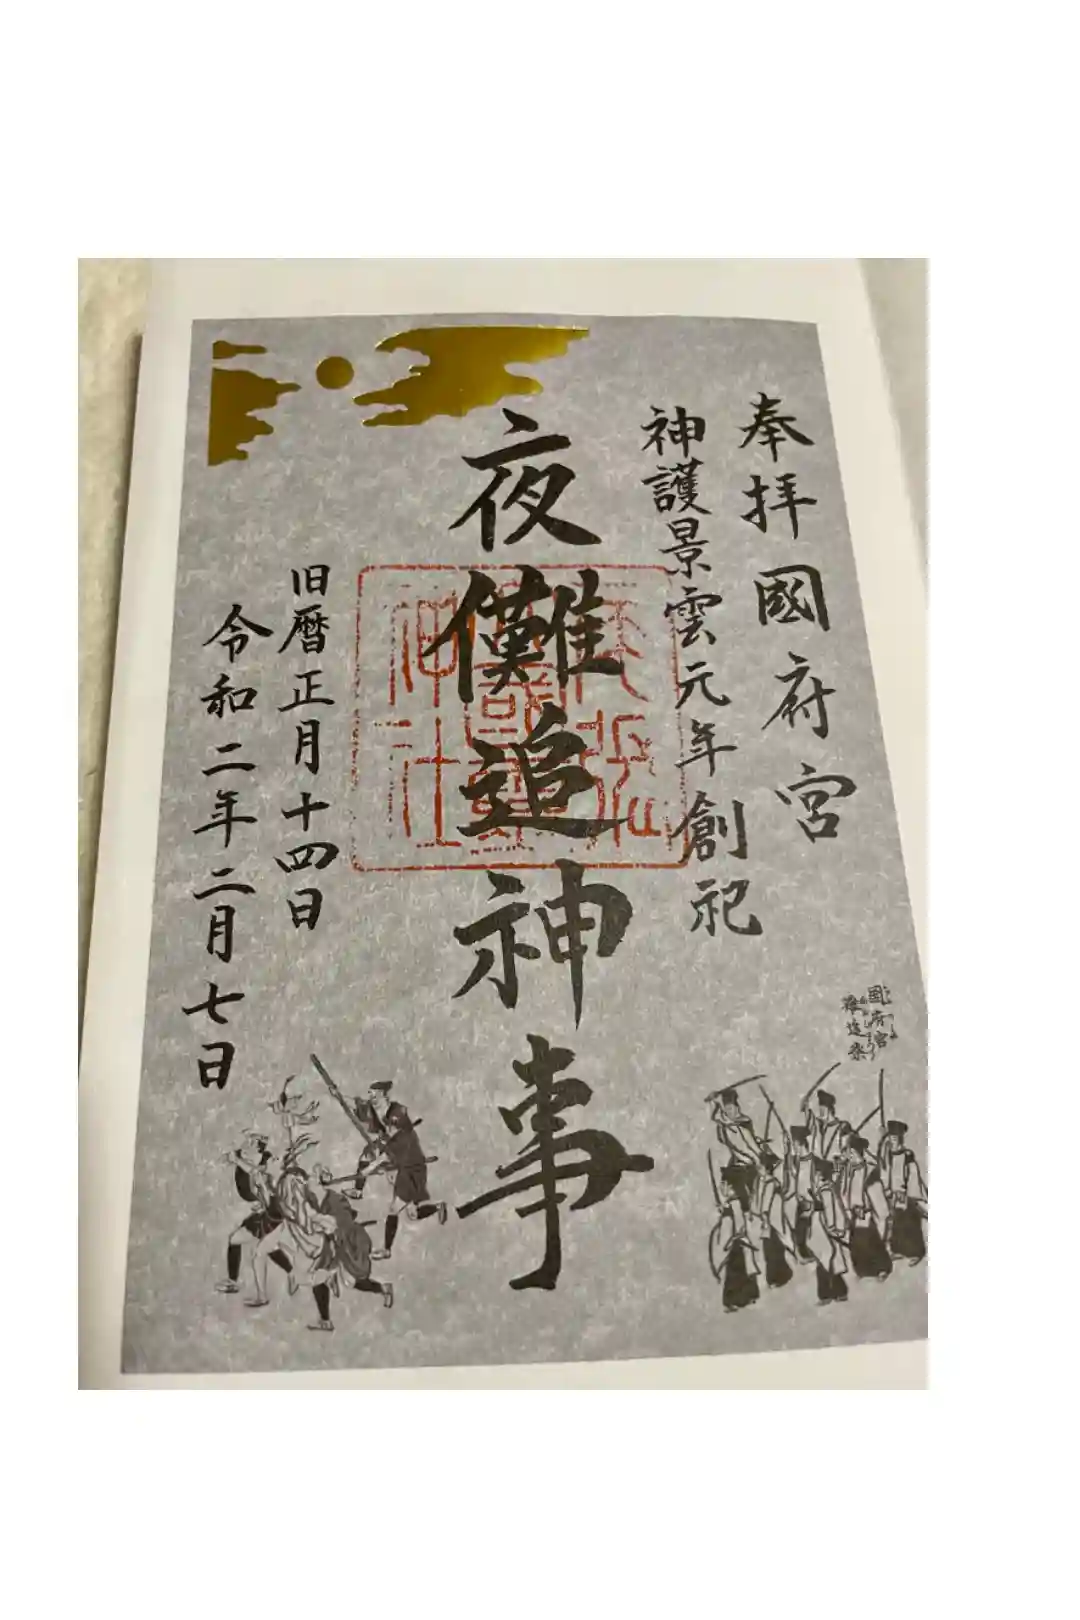 奉拝 國府宮
神護景雲元年 創祀
夜儺追神事
旧暦正月十四日
令和二年二月七日
國府宮